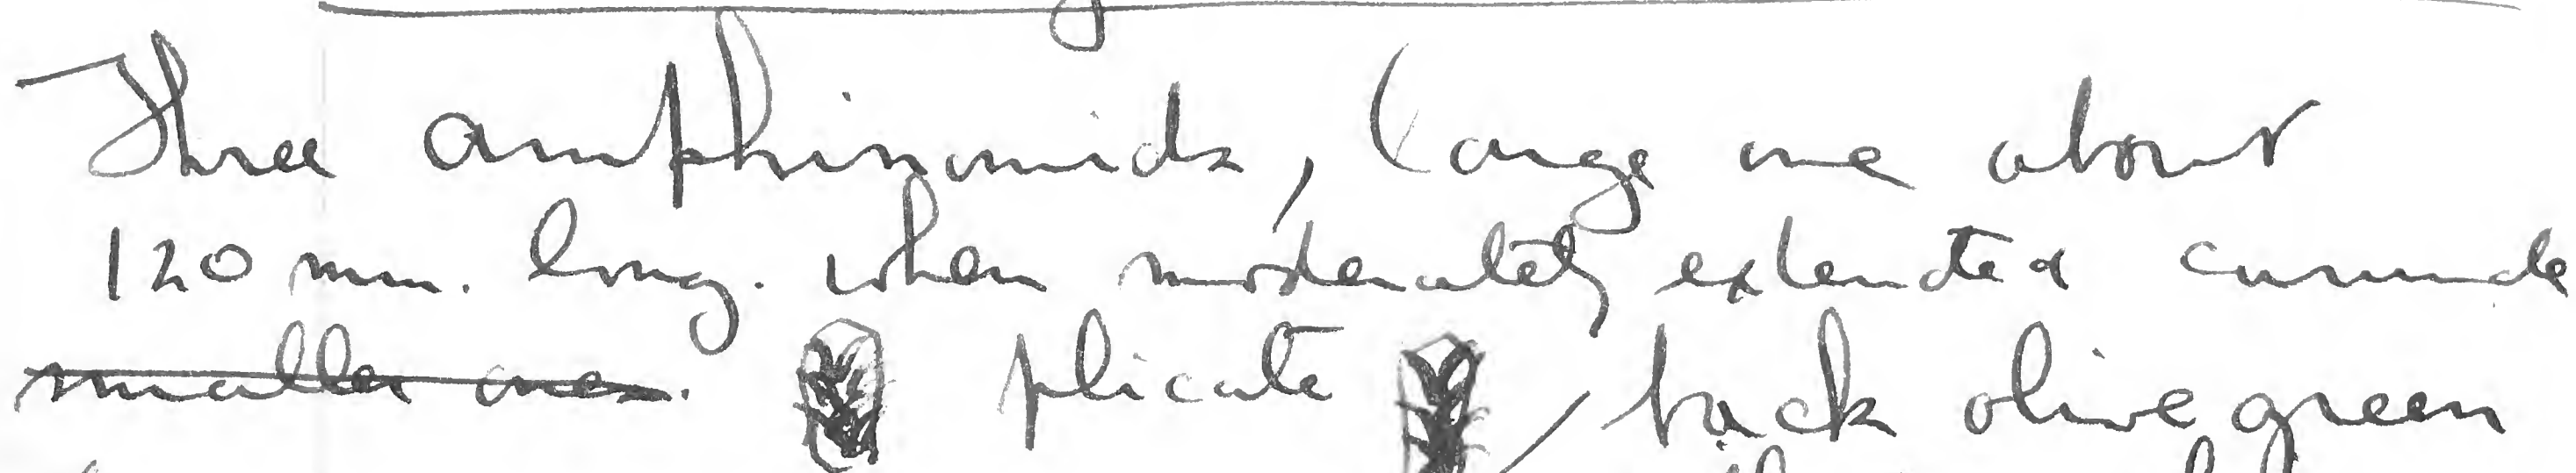 Three amphinomids, large one about
120 mm. long. when moderately extended caruncle
smaller ones. plicate, back olive green